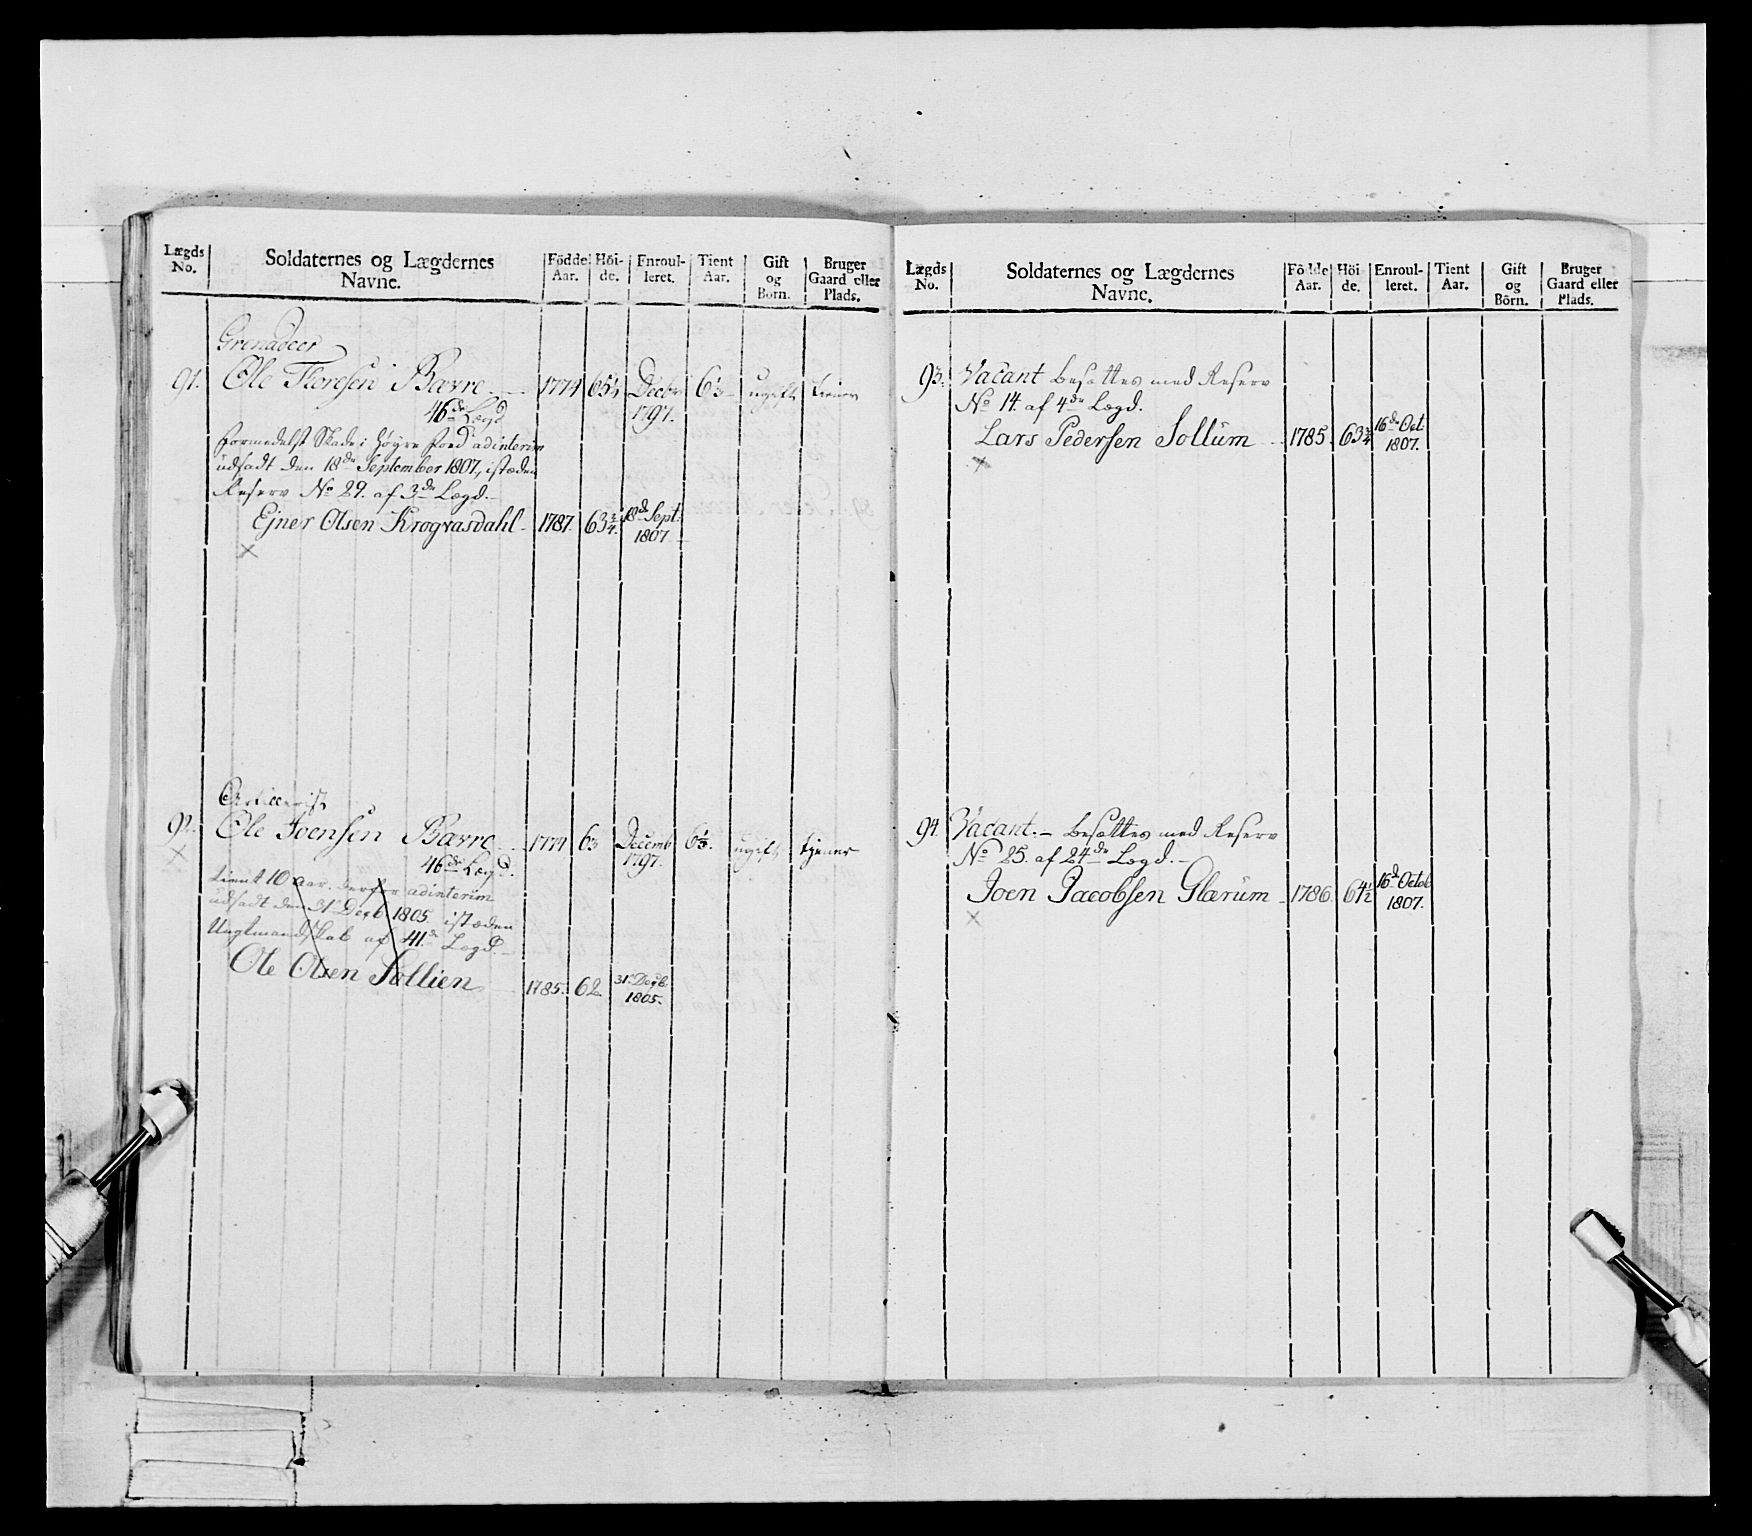 Lægds No. | Soldaternes og Lægdernes Navne. | Födde Aar. | Höi-de. | Enroul-leret. | Tient Aar. | Gift og Börn. | Bruger Gaard eller Plads.
Grenadeer
91. Ole Thoresen Bævre 1774 65 1/2 Decbr 1797. 6 1/3 ugift tiener
46de Lægd
formedelst Skade i høyre foed ad interim
udsadt den 18de September 1807, istæden
Reserv No 29. af 3de Lægd.
Ejner Olsen Krogvasdahl 1787. 63 3/4. 18de Sept. 1807
×
Artillerist
92. Ole Joensen Bævre 1774 63 Decemb 1797. 6 1/3. ugift tjener
× 46de Lægd.
tient 10 aar. derfor ad interim
udsadt den 31 Decb 1805. istæden
Ungtmandskab af 41.de Lægd.
Ole Olsen Søllien 1785. 62. 31. Decb. 1805.
Lægds No. | Soldaternes og Lægdernes Navne. | Födde Aar. | Höi-de. | Enroul-leret. | Tient Aar. | Gift og Börn. | Bruger Gaard eller Plads.
93. Vacant besættes med Reserv
No 14. af 4de Lægd.
Lars Pedersen Sollum 1785. 63 3/4 16de Oct. 1807.
×
94. Vacant. besættes med Reserv
No 25. af 24de Lægd.
Joen Jacobsen Glærum 1786. 64 1/2 16de Octob 1807.
×